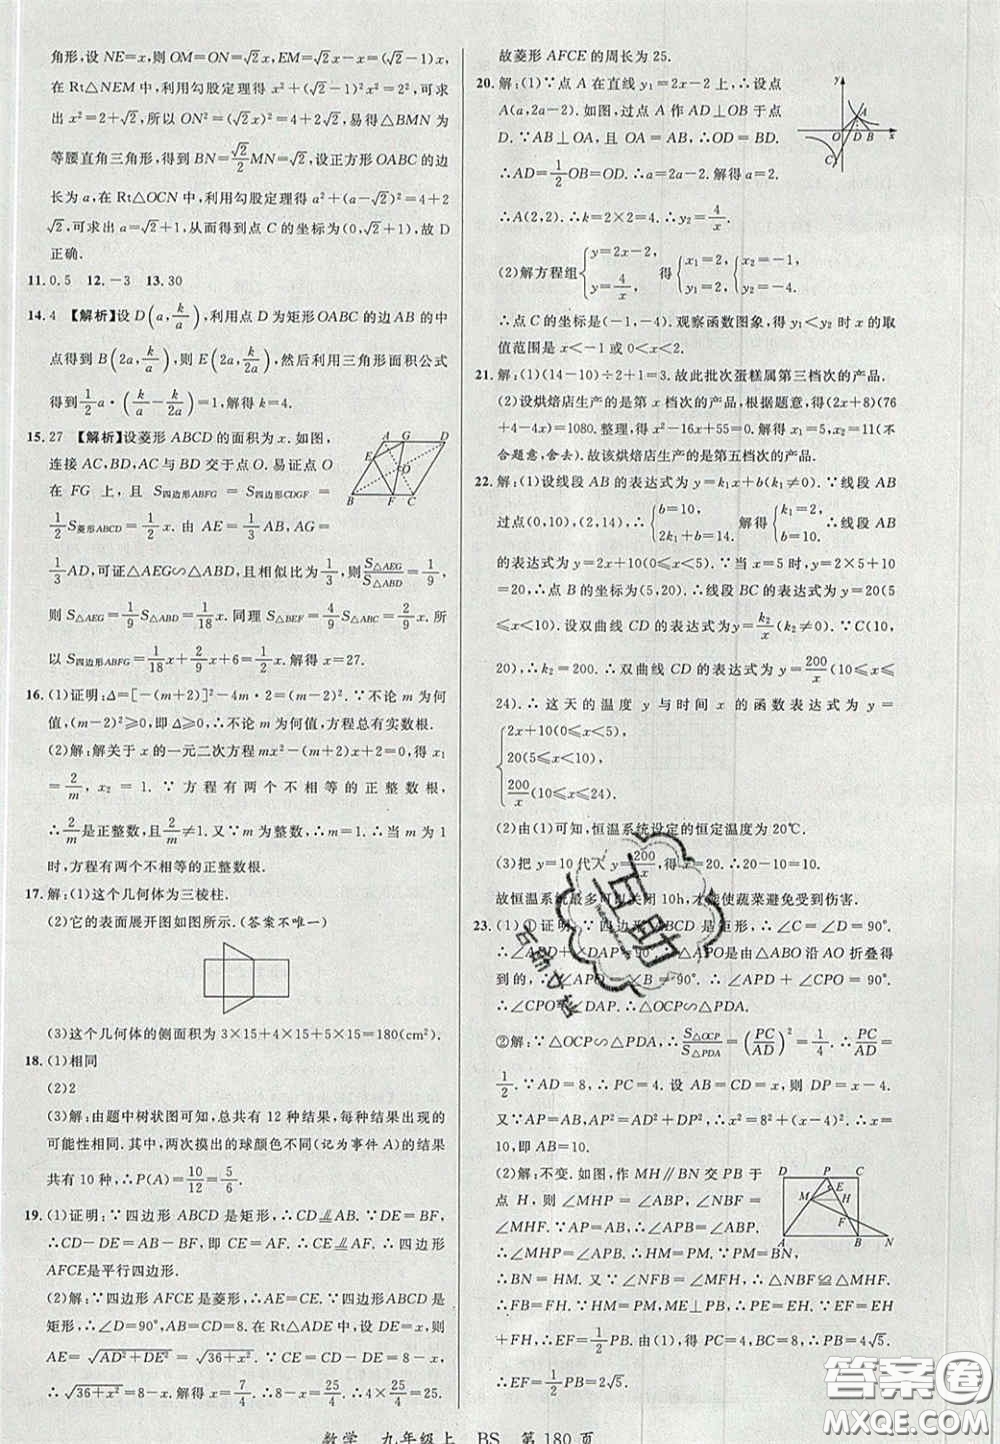 角形,设 NE=x,则 OM=ON=√2x,EM=√2x-x=(√2-1)x,
在 Rt△NEM 中,利用勾股定理得 x²+(√2-1)²x²=2²,可求
出 x²=2+√2,所以 ON²=(√2x)²=4+2√2,易得△BMN 为
等腰直角三角形,所以得到 BN=√2/2MN=√2,设正方形 OABC 的边
长为 a,在 Rt△OCN 中,利用勾股定理得 a²+(a-√2)²=4+2
√2,可求出 a=√2+1,从而得到点 C 的坐标为(0,√2+1),故 D
正确.
11.0.5 12.-3 13.30
14.4 【解析】设 D(a,k/a),利用点 D 为矩形 OABC 的边 AB 的中
点得到 B(2a,k/a),则 E(2a,k/2a),然后利用三角形面积公式
得到 1/2 a·(k/a-k/2a)=1,解得 k=4.
15.27 【解析】设菱形 ABCD 的面积为 x.如图,
连接 AC,BD,AC 与 BD 交于点 O.易证点 O
在 FG 上,且 S四边形ABFG=S四边形CDGF=
1/2 S菱形ABCD=1/2 x.由 AE=1/3 AB,AG=
1/3 AD,可证△AEG∽△ABD,且相似比为 1/3,则 S△AEG/S△ABD=1/9,
则 S△AEG=1/9 S△ABD=1/18 x.同理 S△BEF=4/9 S△ABC=2/9 x.所
以 S四边形ABFG=1/18 x+2/9 x+6=1/2 x.解得 x=27.
16.(1)证明:Δ=[-(m+2)]²-4m·2=(m-2)².∵不论 m 为何
值,(m-2)²≥0,即 Δ≥0,∴不论 m 为何值,方程总有实数根.
(2)解:解关于 x 的一元二次方程 mx²-(m+2)x+2=0,得 x₁
=2/m,x₂=1.∵方程有两个不相等的正整数根,
∴2/m是正整数,且2/m≠1.又∵m 为整数,∴m=1.∴当 m 为
1时,方程有两个不相等的正整数根.
17.解:(1)这个几何体为三棱柱.
(2)它的表面展开图如图所示.(答案不唯一)
(3)这个几何体的侧面积为 3×15+4×15+5×15=180(cm²).
18.(1)相同
(2)2
(3)解:由题中树状图可知,总共有 12 种结果,每种结果出现的
可能性相同.其中,两次摸出的球颜色不同(记为事件 A)的结果
共有 10 种,∴P(A)=10/12=5/6.
19.(1)证明:∵四边形 ABCD 是矩形,∴CD⫽AB.∵DE=BF,
∴CD-DE=AB-BF,即 CE=AF.∴CE⫽AF.∴四边形
AFCE是平行四边形.
(2)解:∵四边形 AFCE 是菱形,∴AE=CE.∵四边形ABCD是
矩形,∴∠D=90°,AB=CD=8.在 Rt△ADE 中,设 DE=x,则
AE=√AD²+DE²=√36+x²,CE=CD-DE=8-x.
∴√36+x²=8-x.解得 x=7/4.∴8-x=25/4.∴4×25/4=25.
故菱形 AFCE 的周长为 25.
20.解:(1)∵点 A 在直线 y₁=2x-2 上,∴设点
A(a,2a-2).如图,过点 A 作 AD⊥OB 于点
D.∵AB⊥OA,且 OA=AB,∴OD=BD.
∴AD=1/2 OB=OD.∴2a-2=a.解得 a=2.
∴A(2,2).∴k₂=2×2=4.∴y₂=4/x.
(2)解方程组{y=2x-2, y=4/x 得{x₁=2, y₁=2 {x₂=-1, y₂=-4
∴点 C 的坐标是(-1,-4).观察函数图象,得 y₁<y₂ 时 x 的取
值范围是 x<-1 或 0<x<2.
21.解:(1)(14-10)÷2+1=3.故此批次蛋糕属第三档次的产品.
(2)设烘焙店生产的是第 x 档次的产品,根据题意,得(2x+8)(76
+4-4x)=1080.整理,得 x²-16x+55=0.解得 x₁=5,x₂=11(不
合题意,舍去).故该烘焙店生产的是第五档次的产品.
22.解:(1)设线段 AB 的表达式为 y=k₁x+b(k≠0).∵线段 AB
过点(0,10),(2,14),∴{b=10, 2k₁+b=14. 解得{k₁=2, b=10. ∴线段 AB
的表达式为 y=2x+10(0≤x<5).∵当 x=5 时,y=2×5+10
=20,∴点 B 的坐标为(5,20).∴线段 BC 的表达式为 y=20(5
≤x<10).设双曲线 CD 的表达式为 y=k₂/x(k₂≠0).∵C(10,
20),∴k₂=200.∴双曲线 CD 的表达式为 y=200/x(10≤x≤
24).∴这天的温度 y 与时间 x 的函数表达式为 y=
{2x+10(0≤x<5),
20(5≤x<10),
200/x(10≤x≤24).
(2)由(1)可知,恒温系统设定的恒定温度为 20℃.
(3)把 y=10 代入 y=200/x,得 x=20.∴20-10=10.
故恒温系统最多可以关闭 10h,才能使蔬菜避免受到伤害.
23.(1)①证明:∵四边形 ABCD 是矩形,∴∠C=∠D=90°.
∴∠APD+∠DAP=90°.∵△APO 是由△ABO 沿 AO 折叠得
到的,∴∠APO=∠B=90°.∴∠APD+∠CPO=90°.
∴∠CPO=∠DAP.∴△OCP∽△PDA.
②解:∵△OCP∽△PDA,∴S△OCP/S△PDA=(PC/AD)²=1/4.∴PC/AD=
1/2.∵AD=8,∴PC=4.设 AB=DC=x,则 DP=x-4.
又∵AP=AB=x,AP²=AD²+DP²,∴x²=8²+(x-4)²,∴x=
10,即 AB=10.
(2)解:不变.如图,作 MH∥BN 交 PB 于
点 H,则∠MHP=∠ABP,∠MHF=∠NBF.
∵AP=AB,∴∠APB=∠ABP.
∴∠MHP=∠APB.∴MP=MH.∵MP=BN,
∴BN=HM.又∵∠NFB=∠MFH,∴△NFB≌△MFH.
∴FB=FH.∵MP=MH,ME⊥PB,∴PE=EH.∴EF=EH
+FH,∴EF=1/2 PB.由(1),得 PC=4,BC=8,∴PB=4√5.
∴EF=1/2 PB=2√5.
数学 九年级上 BS 第 180 页
互助
答案圈
MXQE.COM